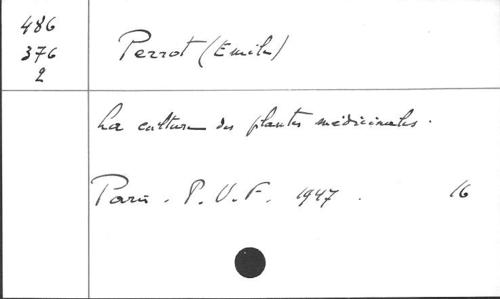 486
376
2
Perrot (Emile)
La culture des plantes médicinales.
Paris. P.U.F. 1947. 16